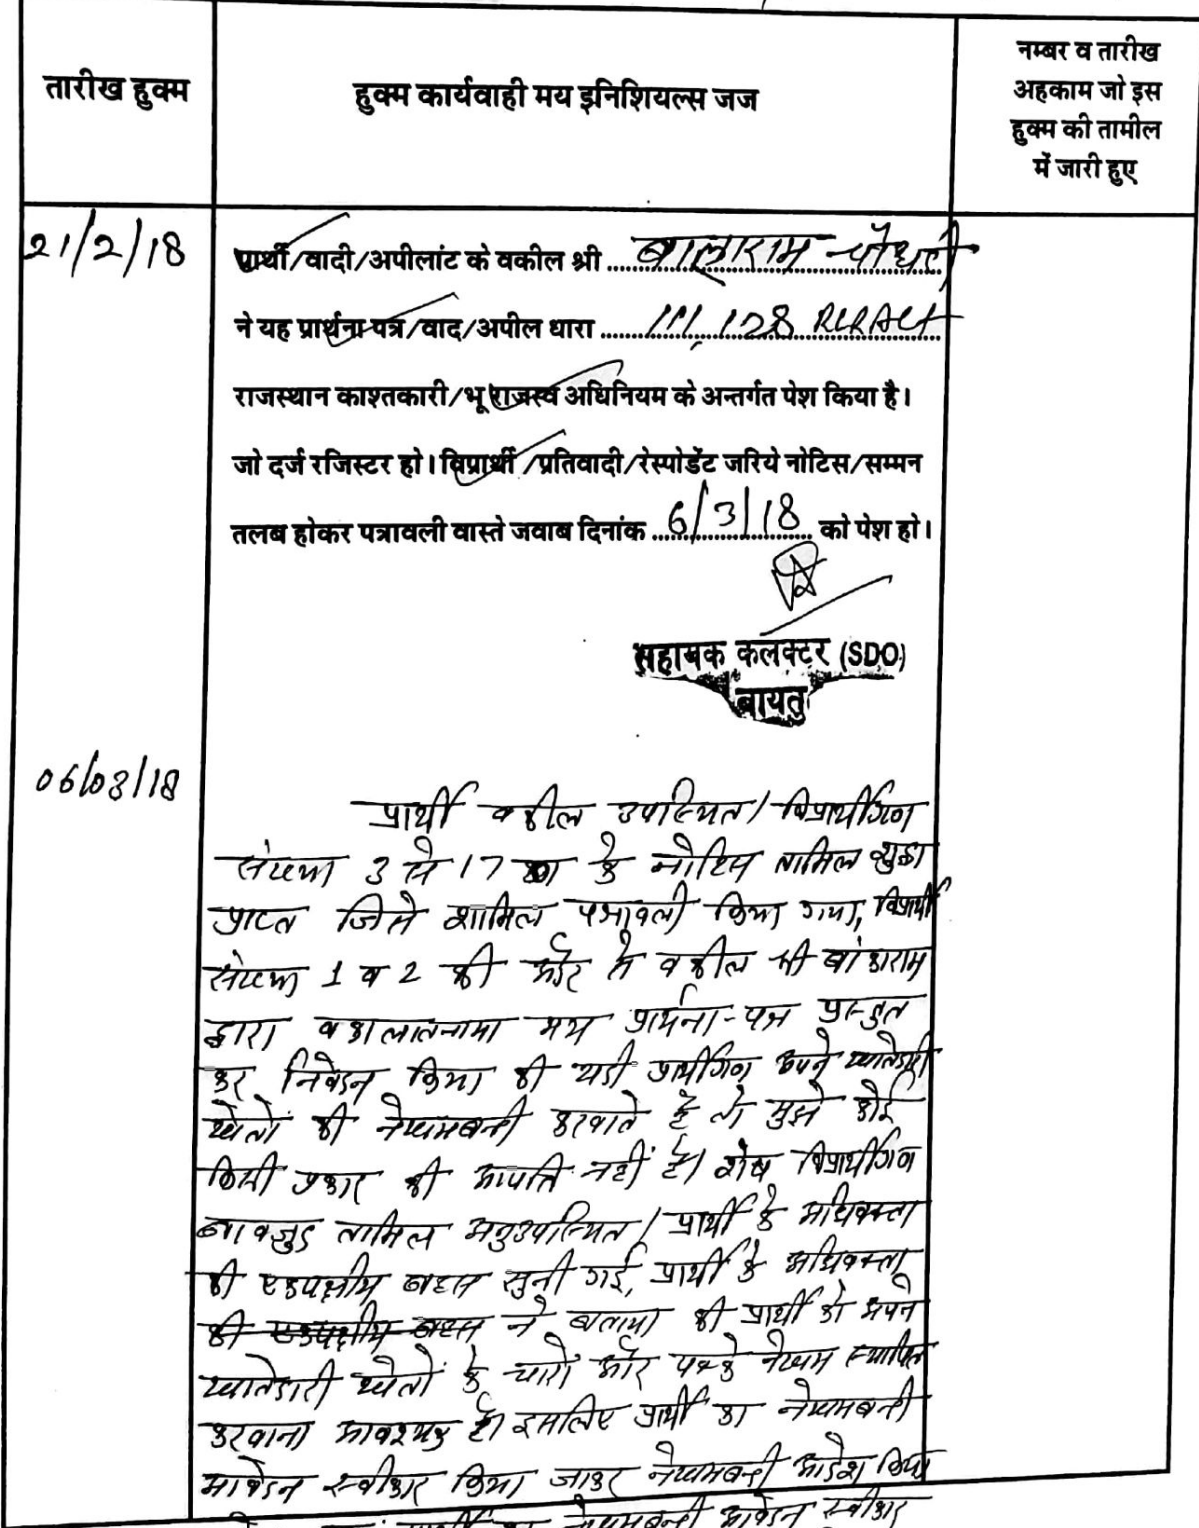 तारीख हुक्म
हुक्म कार्यवाही मय इनिशियल्स जज
नम्बर व तारीख
अहकाम जो इस
हुक्म की तामील
में जारी हुए
21/2/18
प्रार्थी/वादी/अपीलांट के वकील श्री बालाराम चौधरी
ने यह प्रार्थना पत्र/वाद/अपील धारा 111, 128 RLR Act
राजस्थान काश्तकारी/भू राजस्व अधिनियम के अन्तर्गत पेश किया है।
जो दर्ज रजिस्टर हो। विप्रार्थी/प्रतिवादी/रेस्पोडेंट जरिये नोटिस/सम्मन
तलब होकर पत्रावली वास्ते जवाब दिनांक 6/3/18 को पेश हो।
सहायक कलक्टर (SDO)
बायतु
06/03/18
प्रार्थी वकील उपस्थित। विप्रार्थीगण
संख्या 3 से 17 के नोटिस तामिल शुदा
प्राप्त जिसे शामिल पत्रावली किया गया, विप्रार्थी
संख्या 1 व 2 की और से वकील श्री बांकाराम
द्वारा वकालातनामा मय प्रार्थना-पत्र प्रस्तुत
कर निवेदन किया की यदी प्रार्थीगण अपने खातेदारी
खेतों की नेखमबन्दी करवाते है तो मुझे कोई
किसी प्रकार की आपति नहीं है। शेष विप्रार्थीगण
बावजुद तामिल अनुउपस्थित। प्रार्थी के अधिवक्ता
की एकपक्षीय बहस सुनी गई, प्रार्थी के अधिवक्ता
की एकपक्षीय बहस ने बताया की प्रार्थी को अपने
खातेदारी खेतों के चारों और पक्के नेखम स्थापित
करवाना आवश्यक है। इसलिए प्रार्थी का नेखमबन्दी
आवेदन स्वीकार किया जाकर नेखमबन्दी आदेश किया
नेखमबन्दी आवेदन स्वीकार